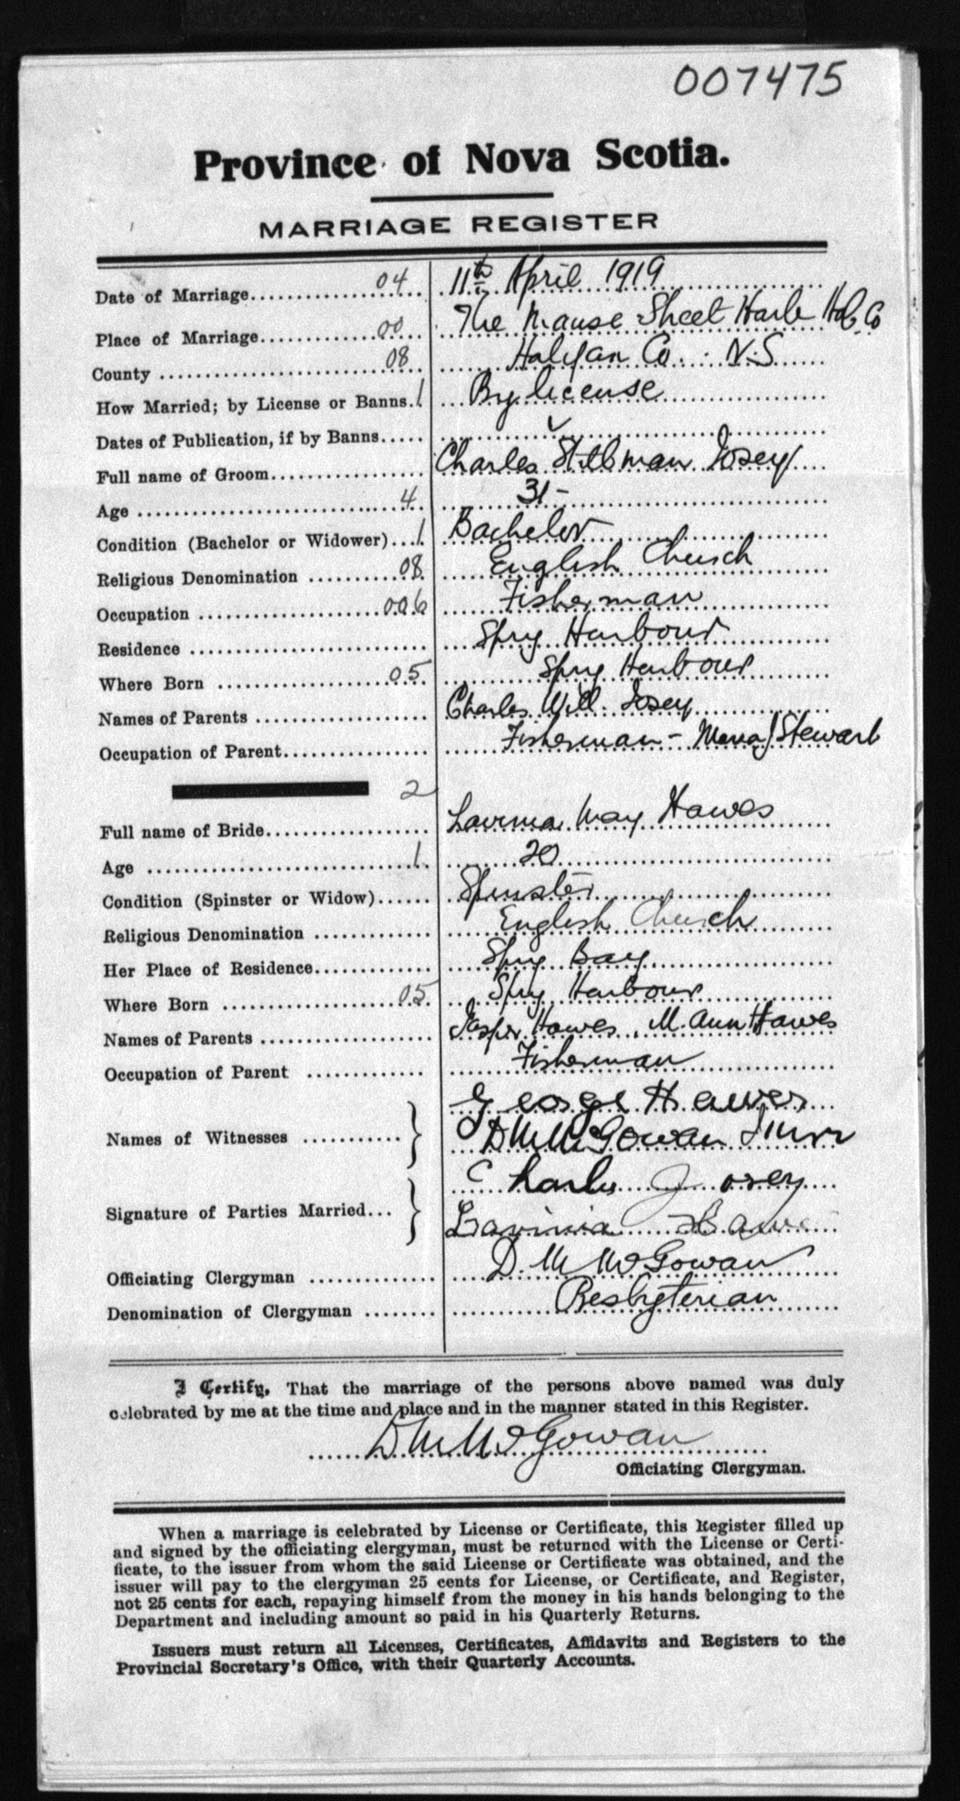 007475
Province of Nova Scotia.
MARRIAGE REGISTER
Date of Marriage 04 11th April 1919
Place of Marriage 00 The Manse Sheet Harb Hal. Co
County 08 Halifax Co. N.S
How Married; by License or Banns. 1 By license
Dates of Publication, if by Banns
Full name of Groom Charles Stillman Josey
Age 4 31-
Condition (Bachelor or Widower) 1 Bachelor
Religious Denomination 08 English Church
Occupation 006 Fisherman
Residence Spry Harbour
Where Born 05 Spry Harbour
Names of Parents Charles Will. Josey
Occupation of Parent Fisherman - Stewart
2
Full name of Bride Lavinia May Hawes
Age 1 20
Condition (Spinster or Widow) Spinster
Religious Denomination English Church
Her Place of Residence Spry Bay
Where Born 05 Spry Harbour
Names of Parents Jasper Hawes, M. Ann Hawes
Occupation of Parent Fisherman
George Hawes
Names of Witnesses D M McGowan
Charles Josey
Signature of Parties Married Lavinia
Officiating Clergyman D. M McGowan
Denomination of Clergyman Presbyterian
I Certify, That the marriage of the persons above named was duly
celebrated by me at the time and place and in the manner stated in this Register.
D M McGowan
Officiating Clergyman.
When a marriage is celebrated by License or Certificate, this Register filled up
and signed by the officiating clergyman, must be returned with the License or Certi-
ficate, to the issuer from whom the said License or Certificate was obtained, and the
issuer will pay to the clergyman 25 cents for License, or Certificate, and Register,
not 25 cents for each, repaying himself from the money in his hands belonging to the
Department and including amount so paid in his Quarterly Returns.
Issuers must return all Licenses, Certificates, Affidavits and Registers to the
Provincial Secretary's Office, with their Quarterly Accounts.